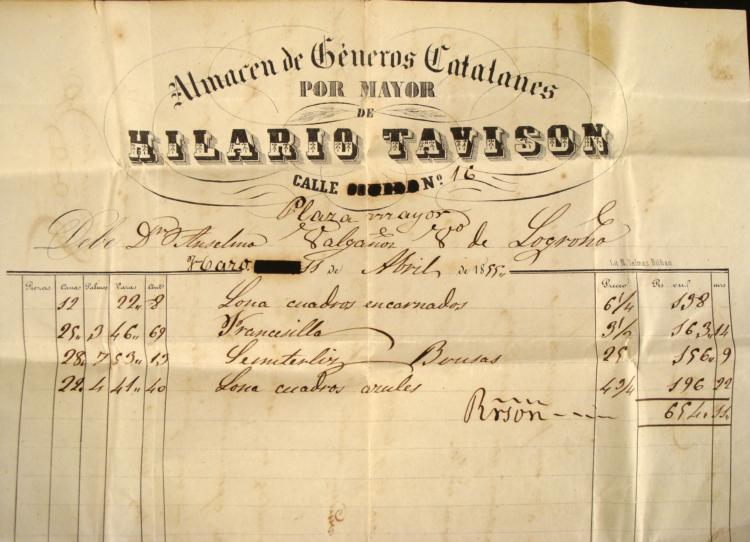 Almacen de Géneros Catalanes
POR MAYOR
DE
HILARIO TAVISON
CALLE Nº 16
Plaza mayor
Debe Dn Anselmo Vº de Logroño
Haro 11 de Abril de 1855
Lit. N. Delmas Bilbao
Piezas Canas Palmos Varas Precio Rs. vn. mrs
12 22 8 Lona cuadros encarnados 6 1/4 138
25 3 46 69 Francesilla 3 1/2 163 14
28 7 53 12 25 156 9
22 4 41 40 Lona cuadros azules 4 3/4 196 22
Rvson 654 11